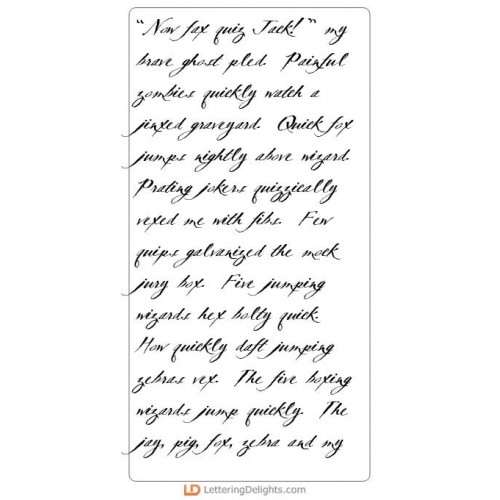 "Now fax quiz Jack!" my
brave ghost pled. Painful
zombies quickly watch a
jinxed graveyard. Quick fox
jumps nightly above wizard.
Prating jokers quizzically
vexed me with fibs. Few
quips galvanized the mock
jury box. Five jumping
wizards hex bolty quick.
How quickly daft jumping
zebras vex. The five boxing
wizards jump quickly. The
jay, pig, fox, zebra and my
LD LetteringDelights.com